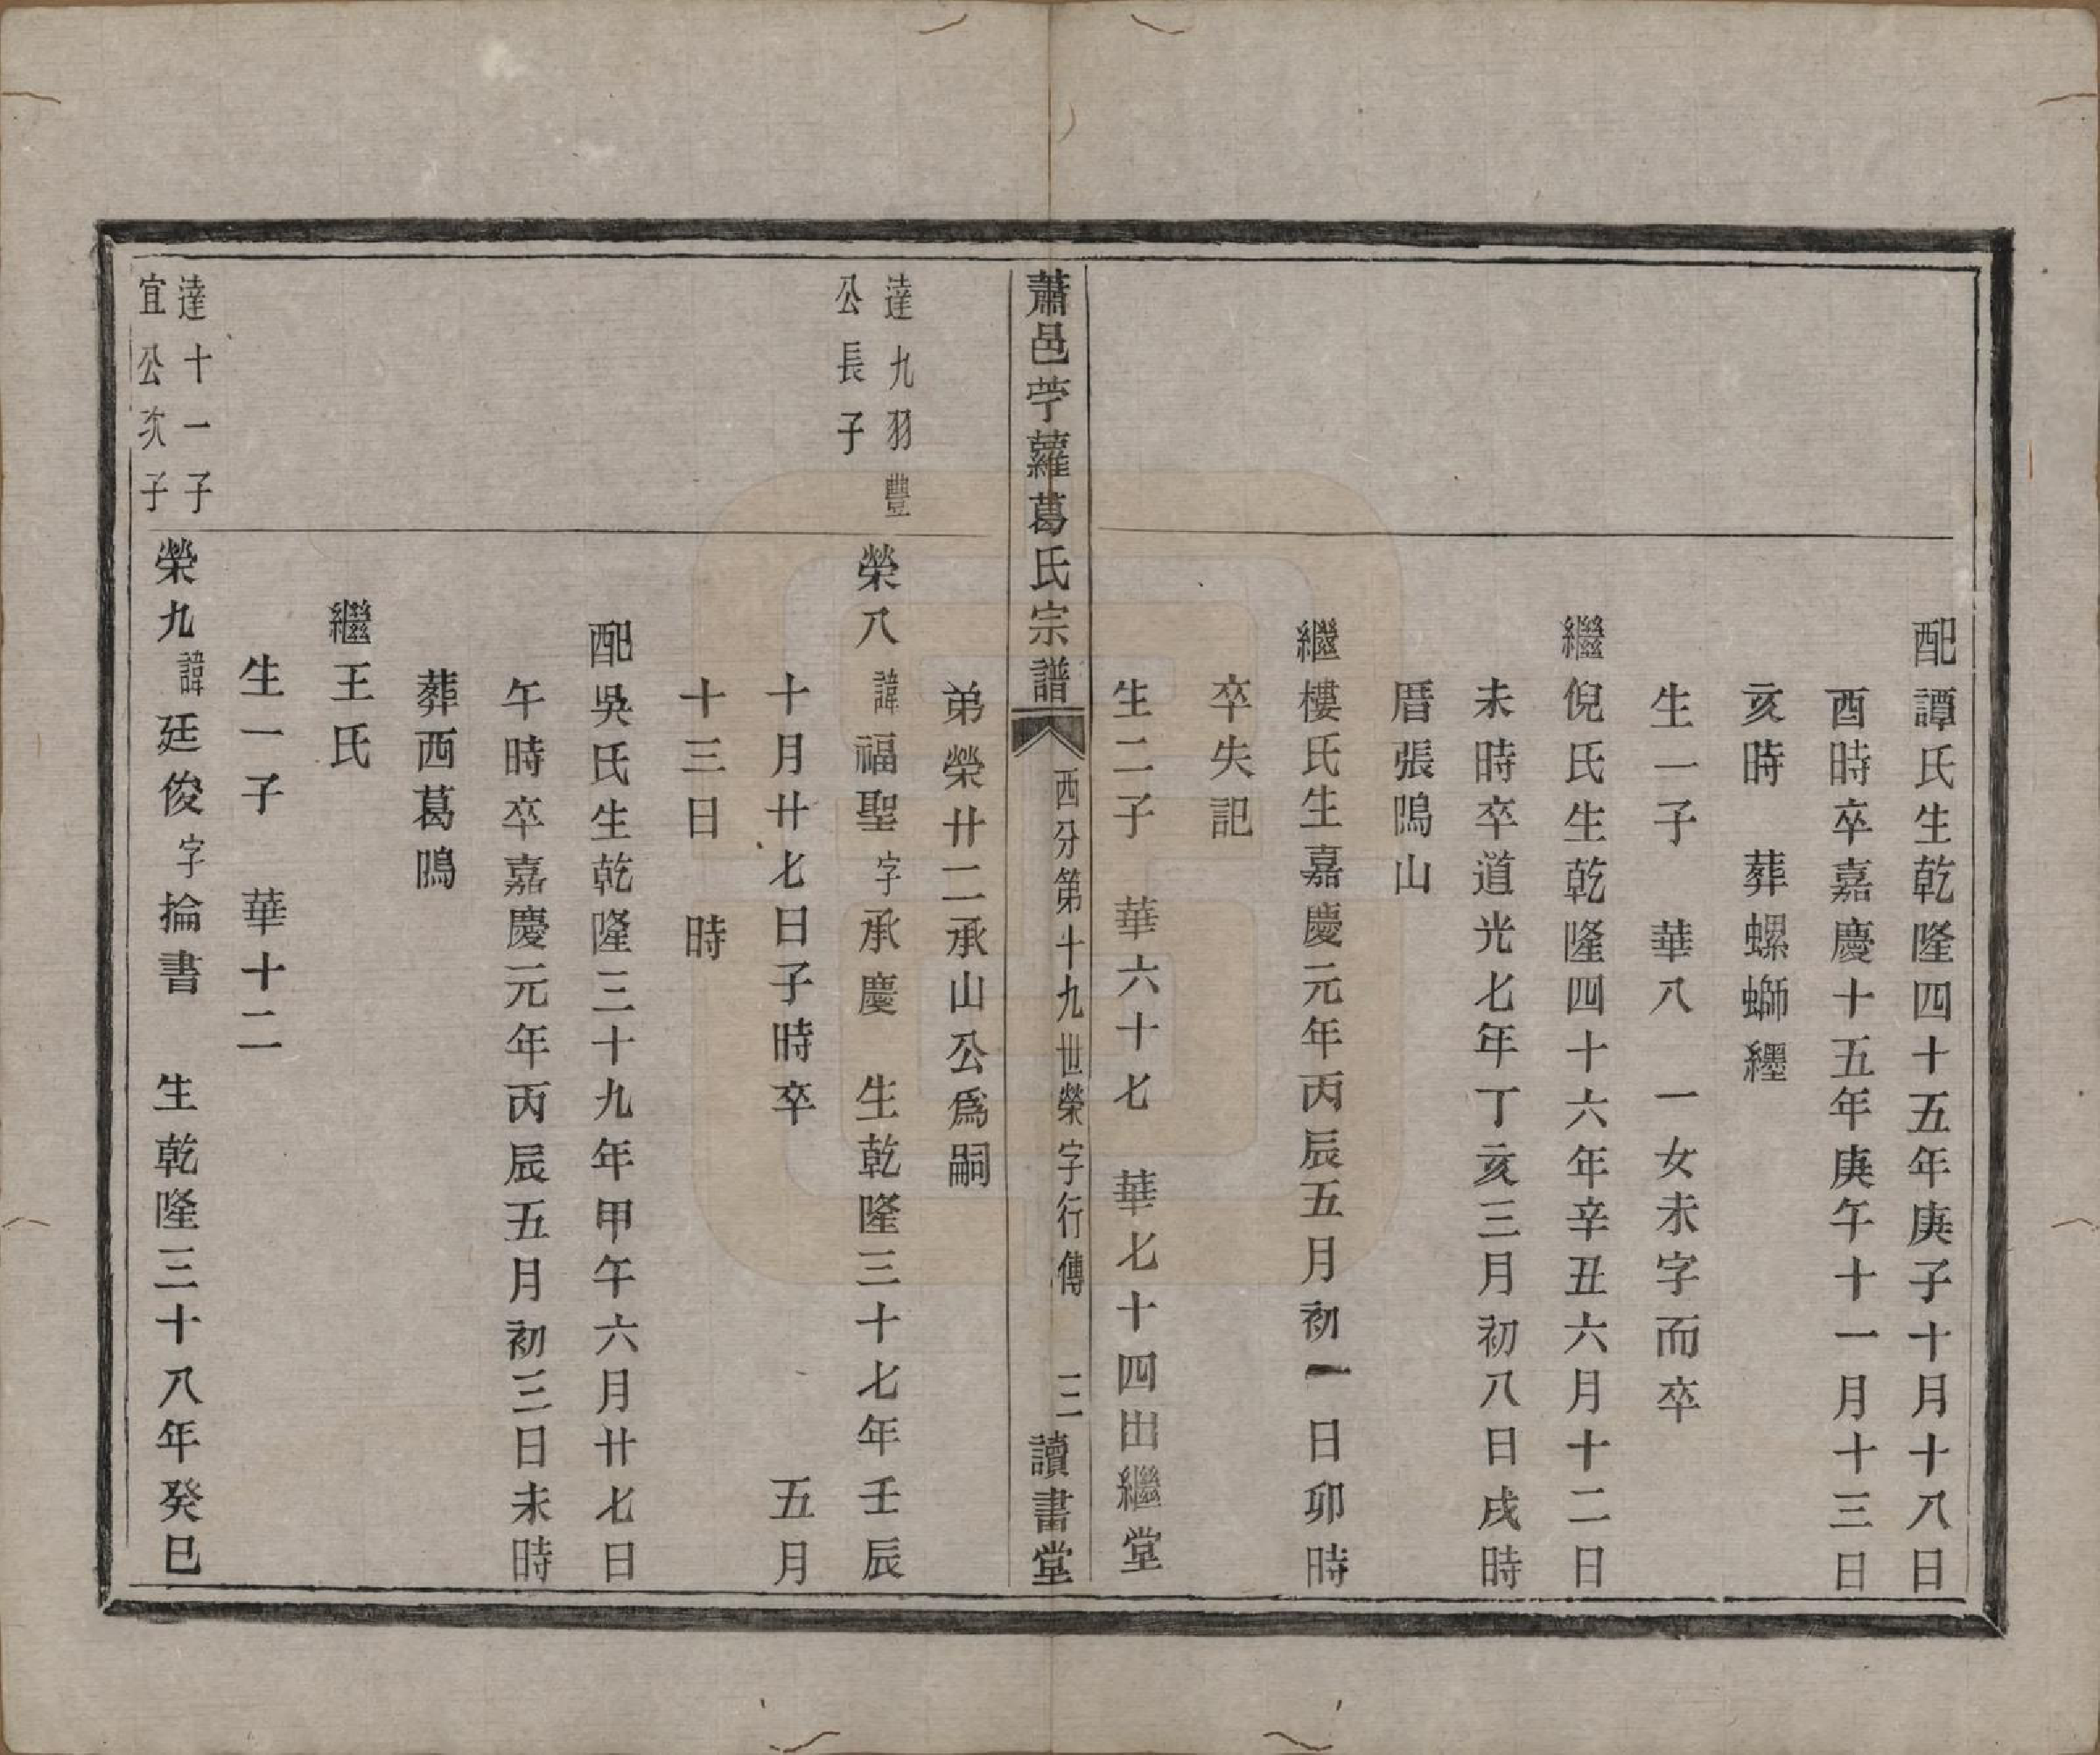 配譚氏生乾隆四十五年庚子十月十八日
酉時卒嘉慶十五年庚午十一月十三日
亥時　葬螺螄纒
生一子　華八　一女未字而卒
繼倪氏生乾隆四十六年辛丑六月十二日
未時卒道光七年丁亥三月初八日戌時
厝張隖山
繼樓氏生嘉慶元年丙辰五月初一日卯時
卒失記
生二子　華六十七　華七十四出繼堂
蕭邑苧蘿葛氏宗譜
西分第十九世榮字行傳　三
讀書堂
弟榮廿二承山公爲嗣
達九羽豐
公長子
榮八諱福聖字承慶　生乾隆三十七年壬辰
十月廿七日子時卒　五月
十三日　時
配吳氏生乾隆三十九年甲午六月廿七日
午時卒嘉慶元年丙辰五月初三日未時
葬西葛隖
繼王氏
生一子　華十二
達十一子
宜公次子
榮九諱廷俊字掄書　生乾隆三十八年癸巳